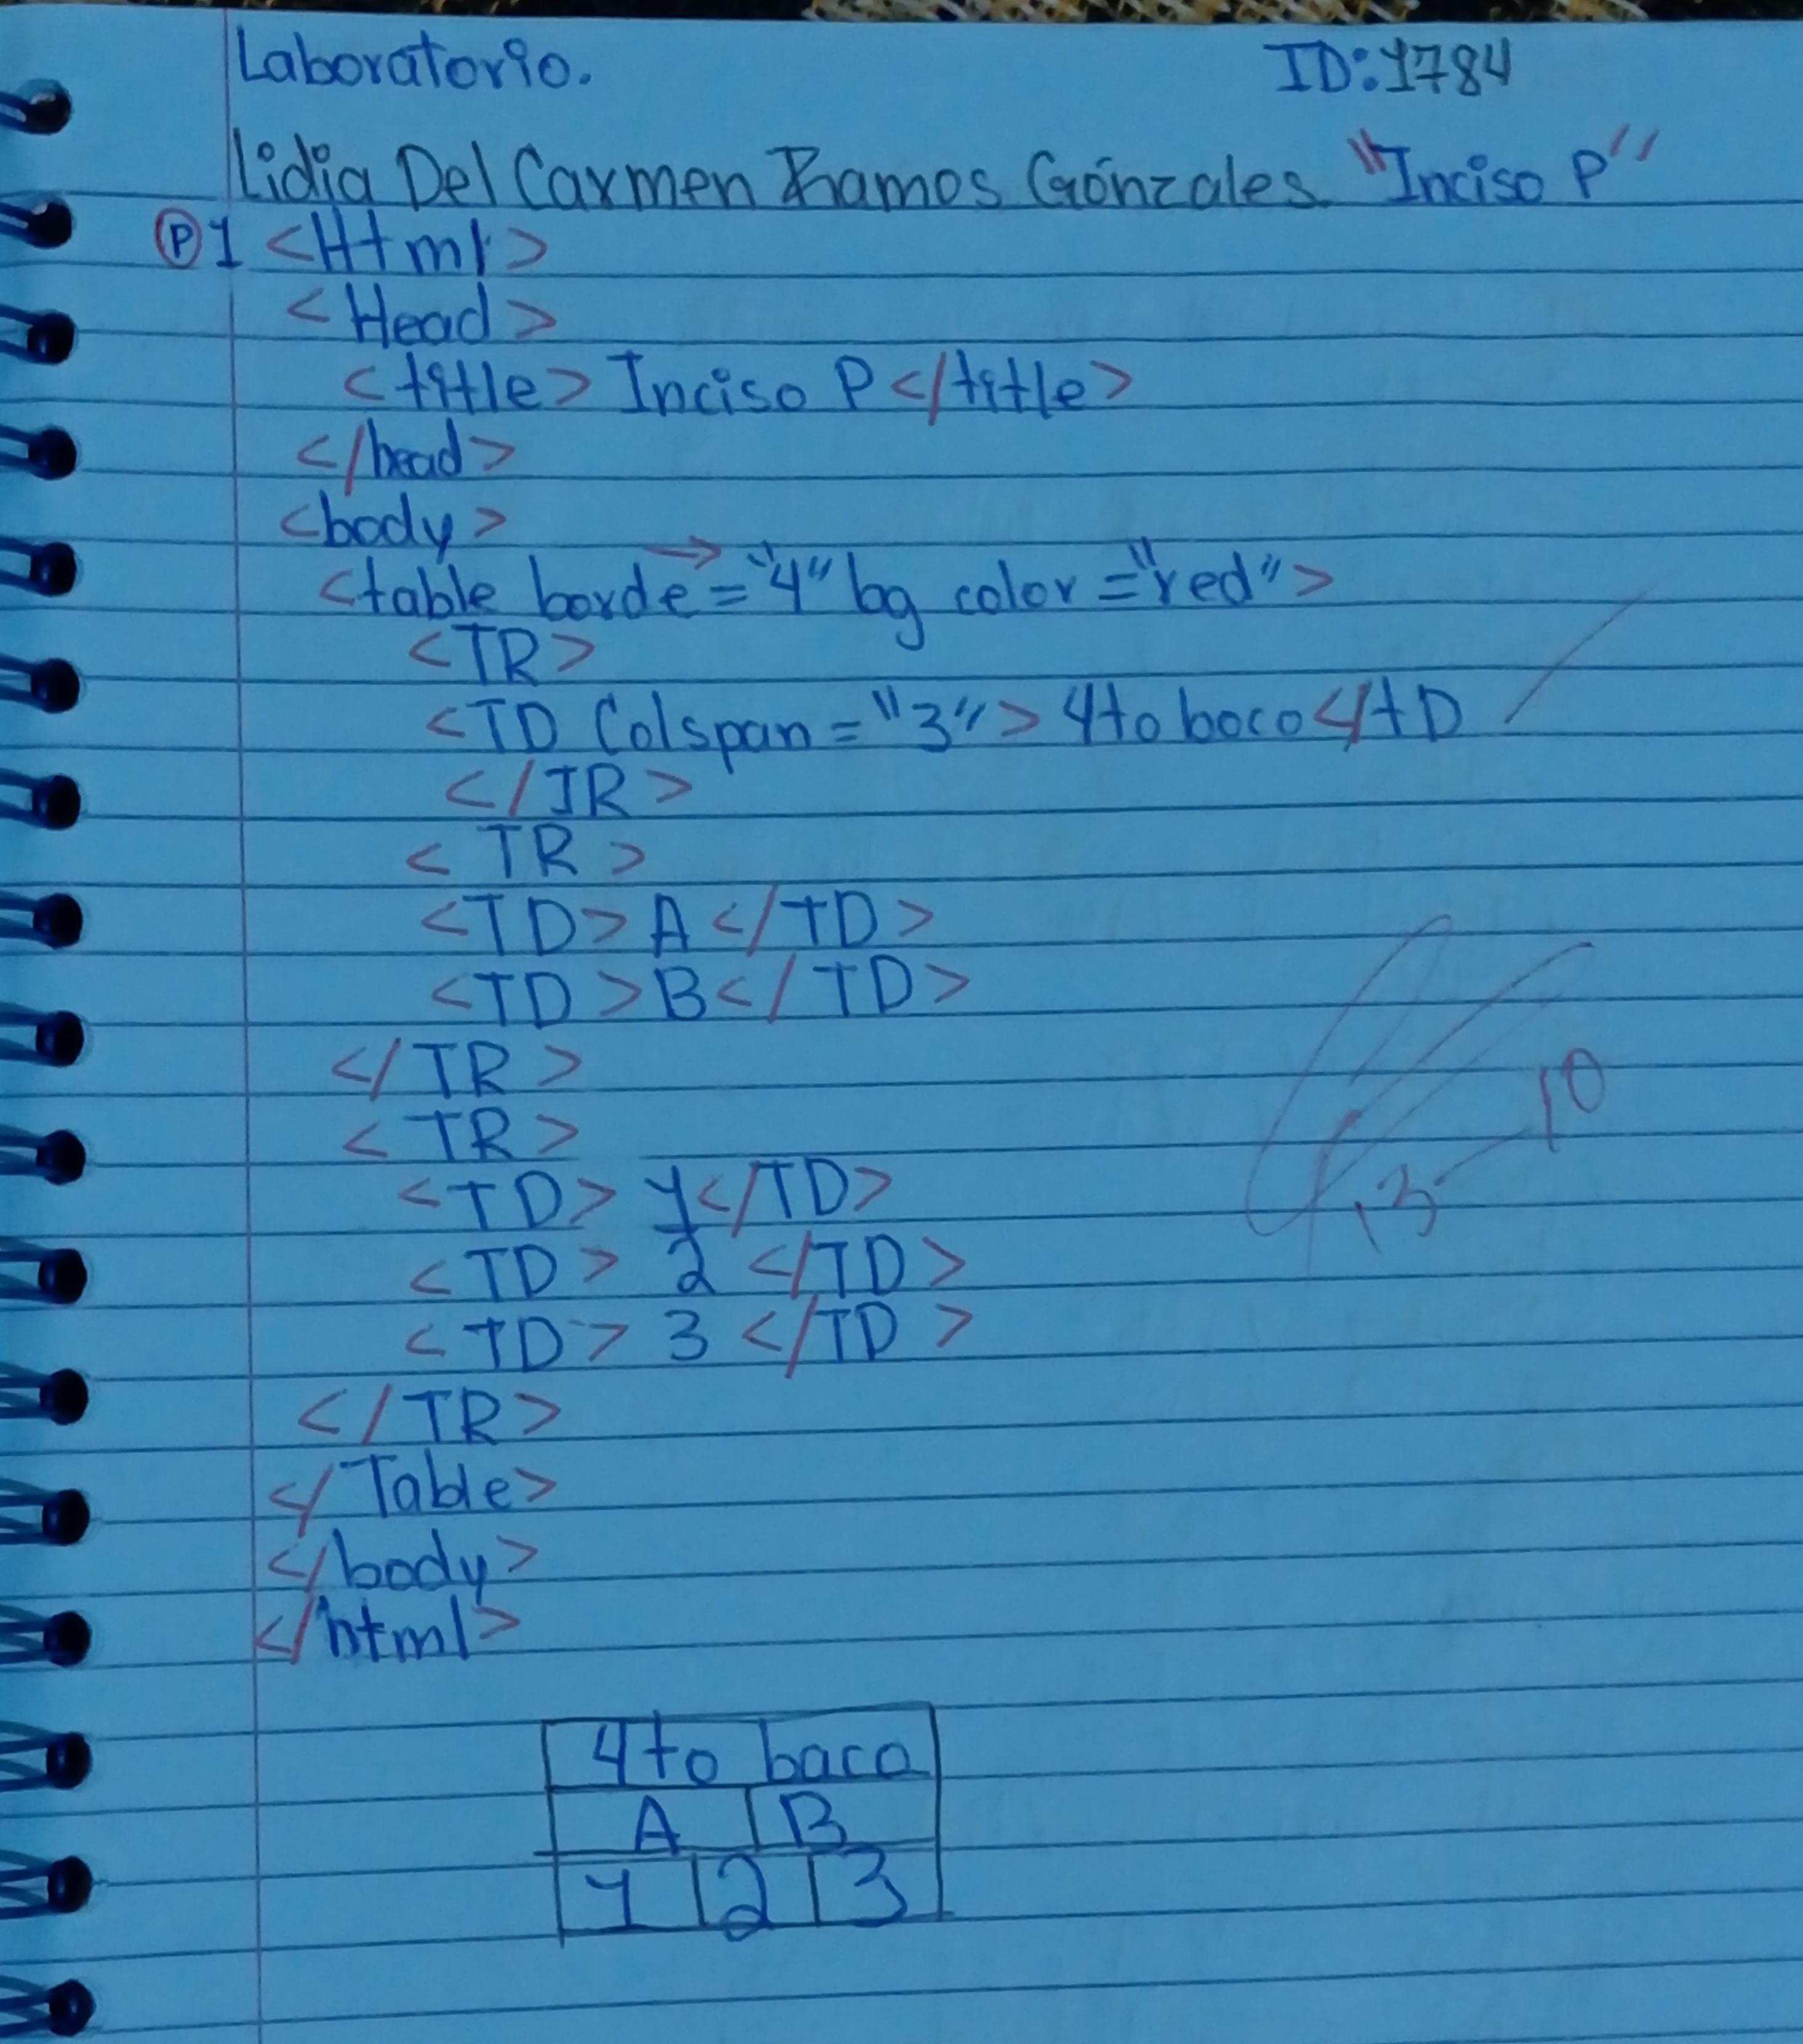 Laboratorio. ID:1784
Lidia Del Carmen Ramos Gónzales. "Inciso P"
P 1 <Html>
<Head>
<title> Inciso P </title>
</head>
<body>
<table borde = "4" bg color = "red">
<TR>
<TD Colspan = "3"> 4to baco </tD
</TR>
<TR>
<TD> A </TD>
<TD> B </TD>
</TR>
<TR>
<TD> 1 </TD>
<TD> 2 </TD>
<TD> 3 </TD>
</TR>
</Table>
</body>
</html>
4to baco
A B
1 2 3